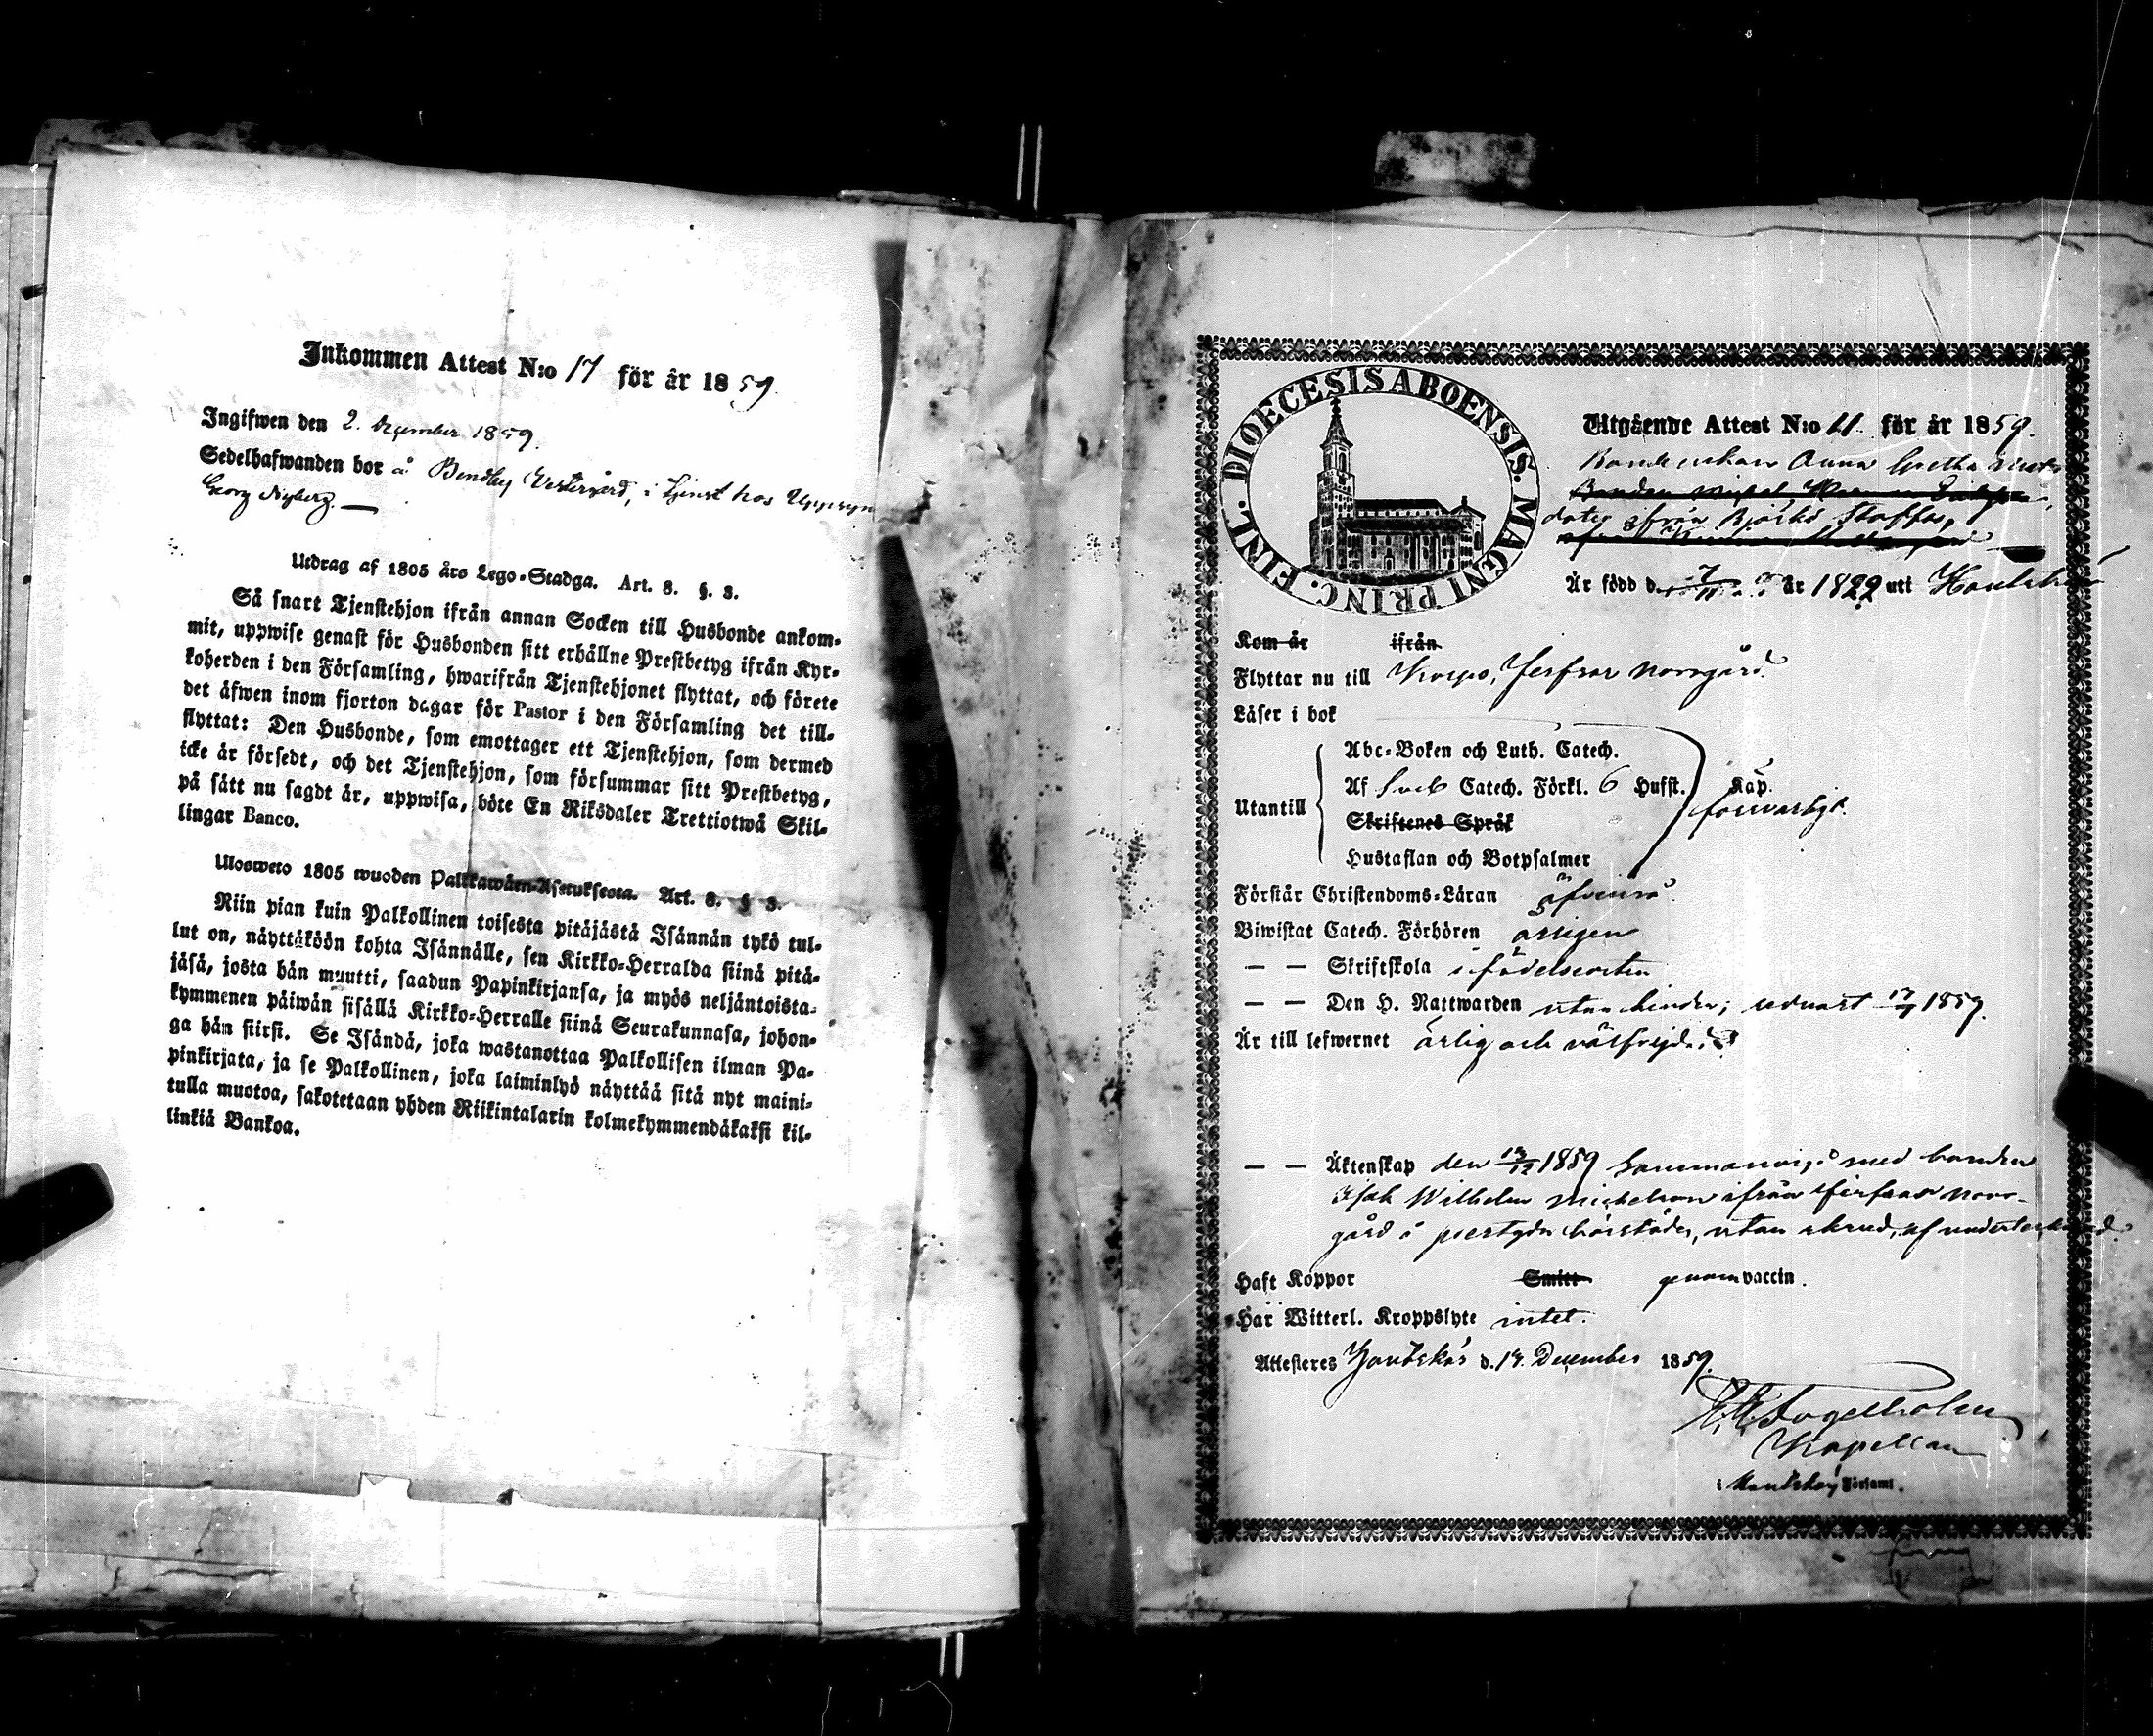 Inkommen Attest N:o 17 för år 1859.
Ingifwen den 2. December 1859.
Sedelhafwanden bor å Bendby Westergård, i tjenst hos Uppsyn
Georg Nyberg.
Utdrag af 1805 års Lego-Stadga. Art. 8. §. 3.
Så snart Tjenstehjon ifrån annan Socken till Husbonde ankom-
mit, uppwise genast för Husbonden sitt erhållne Prestbetyg ifrån Kyr-
koherden i den Församling, hwarifrån Tjenstehjonet flyttat, och förete
det äfwen inom fjorton dagar för Pastor i den Församling det till-
flyttat: Den Husbonde, som emottager ett Tjenstehjon, som dermed
icke är försedt, och det Tjenstehjon, som försummar sitt Prestbetyg,
på sätt nu sagdt är, uppwisa, böte En Riksdaler Trettiotwå Skil-
lingar Banco.
Ulosweto 1805 wuoden Palkkawäen-Asetuksesta. Art. 8. § 3.
Niin pian kuin Palkollinen toisesta pitäjästä Isännän tykö tul-
lut on, näyttäköön kohta Isännälle, sen Kirkko-Herralda siinä pitä-
jäsä, josta hän muutti, saadun Papinkirjansa, ja myös neljäntoista-
kymmenen päiwän sisällä Kirkko-Herralle siinä Seurakunnasa, johon-
ga hän siirsi. Se Isändä, joka wastanottaa Palkollisen ilman Pa-
pinkirjata, ja se Palkollinen, joka laiminlyö näyttää sitä nyt maini-
tulla muotoa, sakotetaan yhden Riikintalarin kolmekymmendäkaksi kil-
linkiä Bankoa.
DIOECESIS ABOENSIS. MAGNI PRINC. FINL.
Utgående Attest N:o 21 för år 1859.
Bondenkan Anna Gretha
Bonden
doter ifrån Björkö Staffas,
Är född d. 7/11 år 1822 uti Houtskär
Kom år ifrån
Flyttar nu till Korpo, Jerfsar Norrgård.
Läser i bok
Abc-Boken och Luth. Catech.
Utantill Af Sveb Catech. Förkl. 6 Hufst. Kap. försvarligt.
Skriftenes Språk
Hustaflan och Botpsalmer
Förstår Christendoms-Läran äfvenså
Biwistat Catech. Förhören årligen
— — Skriftskola i födelseorten
— — Den H. Nattwarden utan hinder; senast 1859.
Är till lefwernet ärlig och välfrejdad
— — Äktenskap den 13/12 1859 sammanvigd med bonden
Isak Wilhelm Michelsson ifrån Jerfsar Norr-
gård å utan skrud, af undertecknad.
Haft Koppor Smitt genom vaccin.
Har Witterl. Kroppslyte intet.
Attesteras Houtskär d. 14. December 1859.
Fogelholm
Kapellan
i Houtskärs Församl.